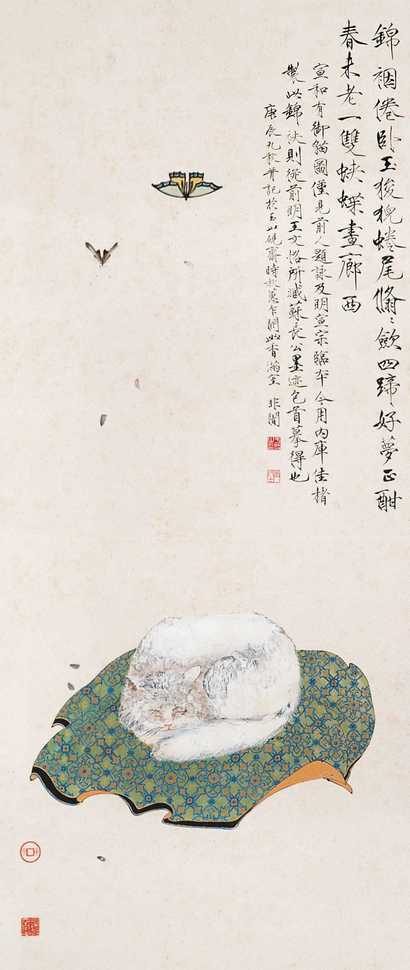 錦裀倦卧玉狻猊蜷尾翛〻斂四蹄好夢正酣
春未老一雙蛺蝶畫廊西
宣和有御貓圖僅見前人題詠及明宣宗臨本今用內庫佳楮
製此錦袱則從前明王文恪所藏蘇長公墨迹包首摹得也
庚辰九秋背記於玉山硯齋時秋蕙乍開幽香滿室 非闇